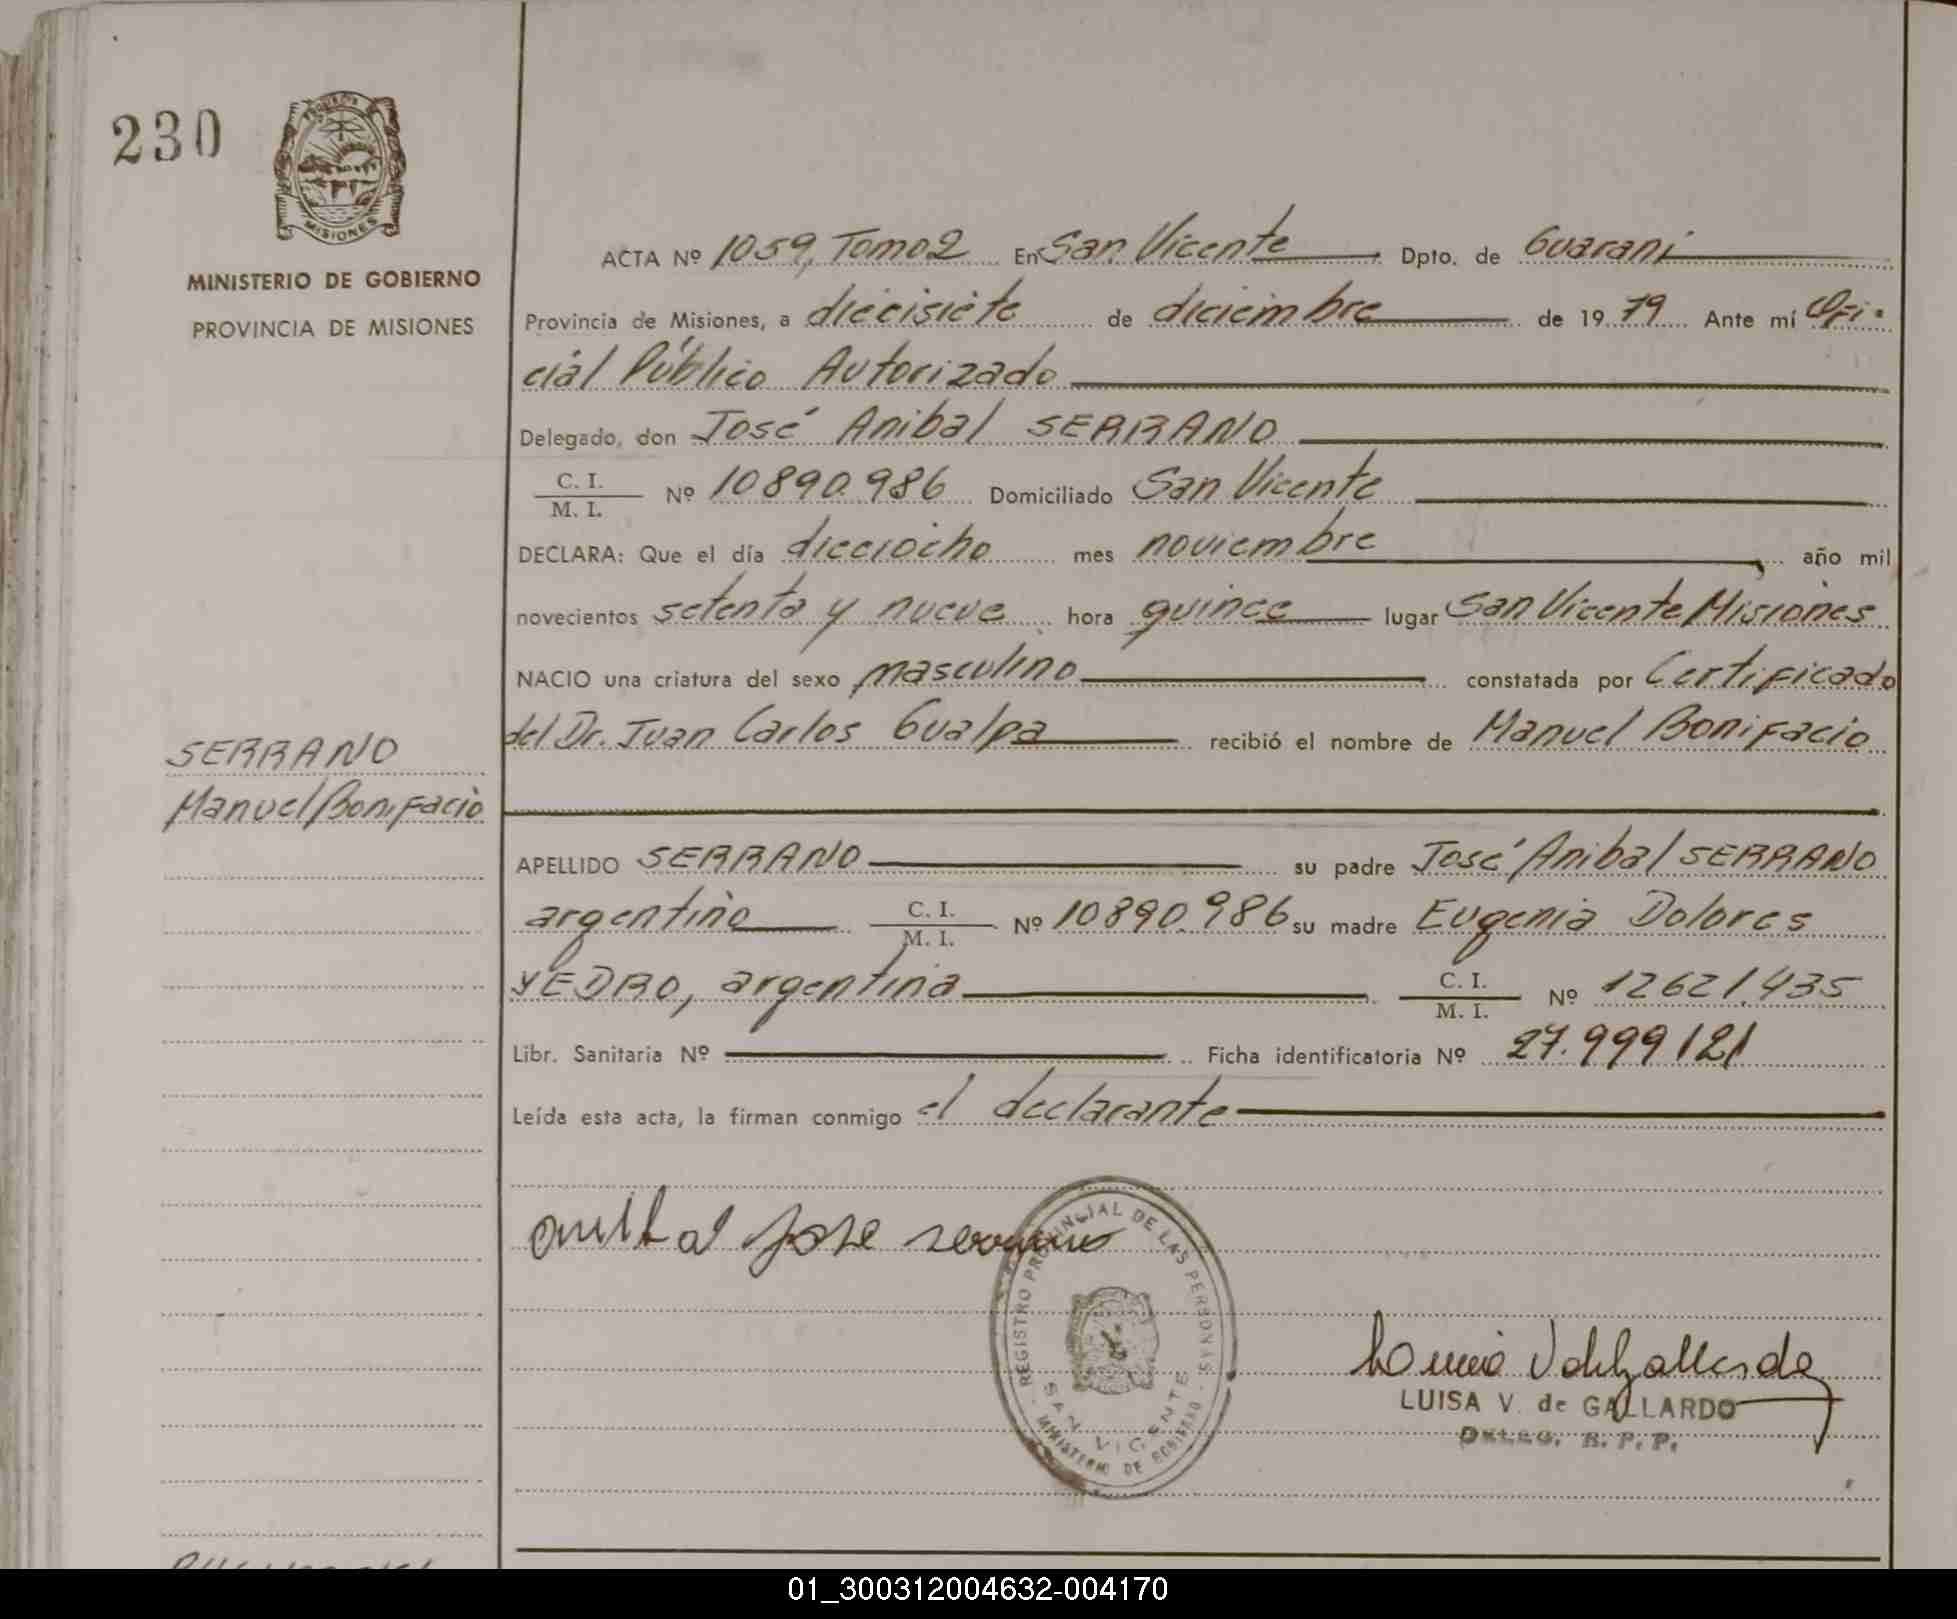 230
PROVINCIA DE
MISIONES
MINISTERIO DE GOBIERNO
PROVINCIA DE MISIONES
ACTA Nº 1059, Tomo 2 En San Vicente Dpto. de Guaraní
Provincia de Misiones, a diecisiete de diciembre de 1979 Ante mí Ofi-
cial Público Autorizado
Delegado, don José Anibal SERRANO
C. I.
M. I. Nº 10890.986 Domiciliado San Vicente
DECLARA: Que el día dieciocho mes noviembre año mil
novecientos setenta y nueve hora quince lugar San Vicente Misiones
NACIO una criatura del sexo masculino constatada por Certificado
del Dr. Juan Carlos Gualpa recibió el nombre de Manuel Bonifacio
SERRANO
Manuel Bonifacio
APELLIDO SERRANO su padre José Anibal SERRANO
argentino C. I. M. I. Nº 10890.986 su madre Eugenia Dolores
YEDRO, argentina C. I. M. I. Nº 12621.435
Libr. Sanitaria Nº Ficha identificatoria Nº 27.999121
Leída esta acta, la firman conmigo el declarante
anibal jose serrano
REGISTRO PROVINCIAL DE LAS PERSONAS
SAN VICENTE
MINISTERIO DE GOBIERNO
LUISA V. de GALLARDO
DELEG. R. P. P.
01_300312004632-004170